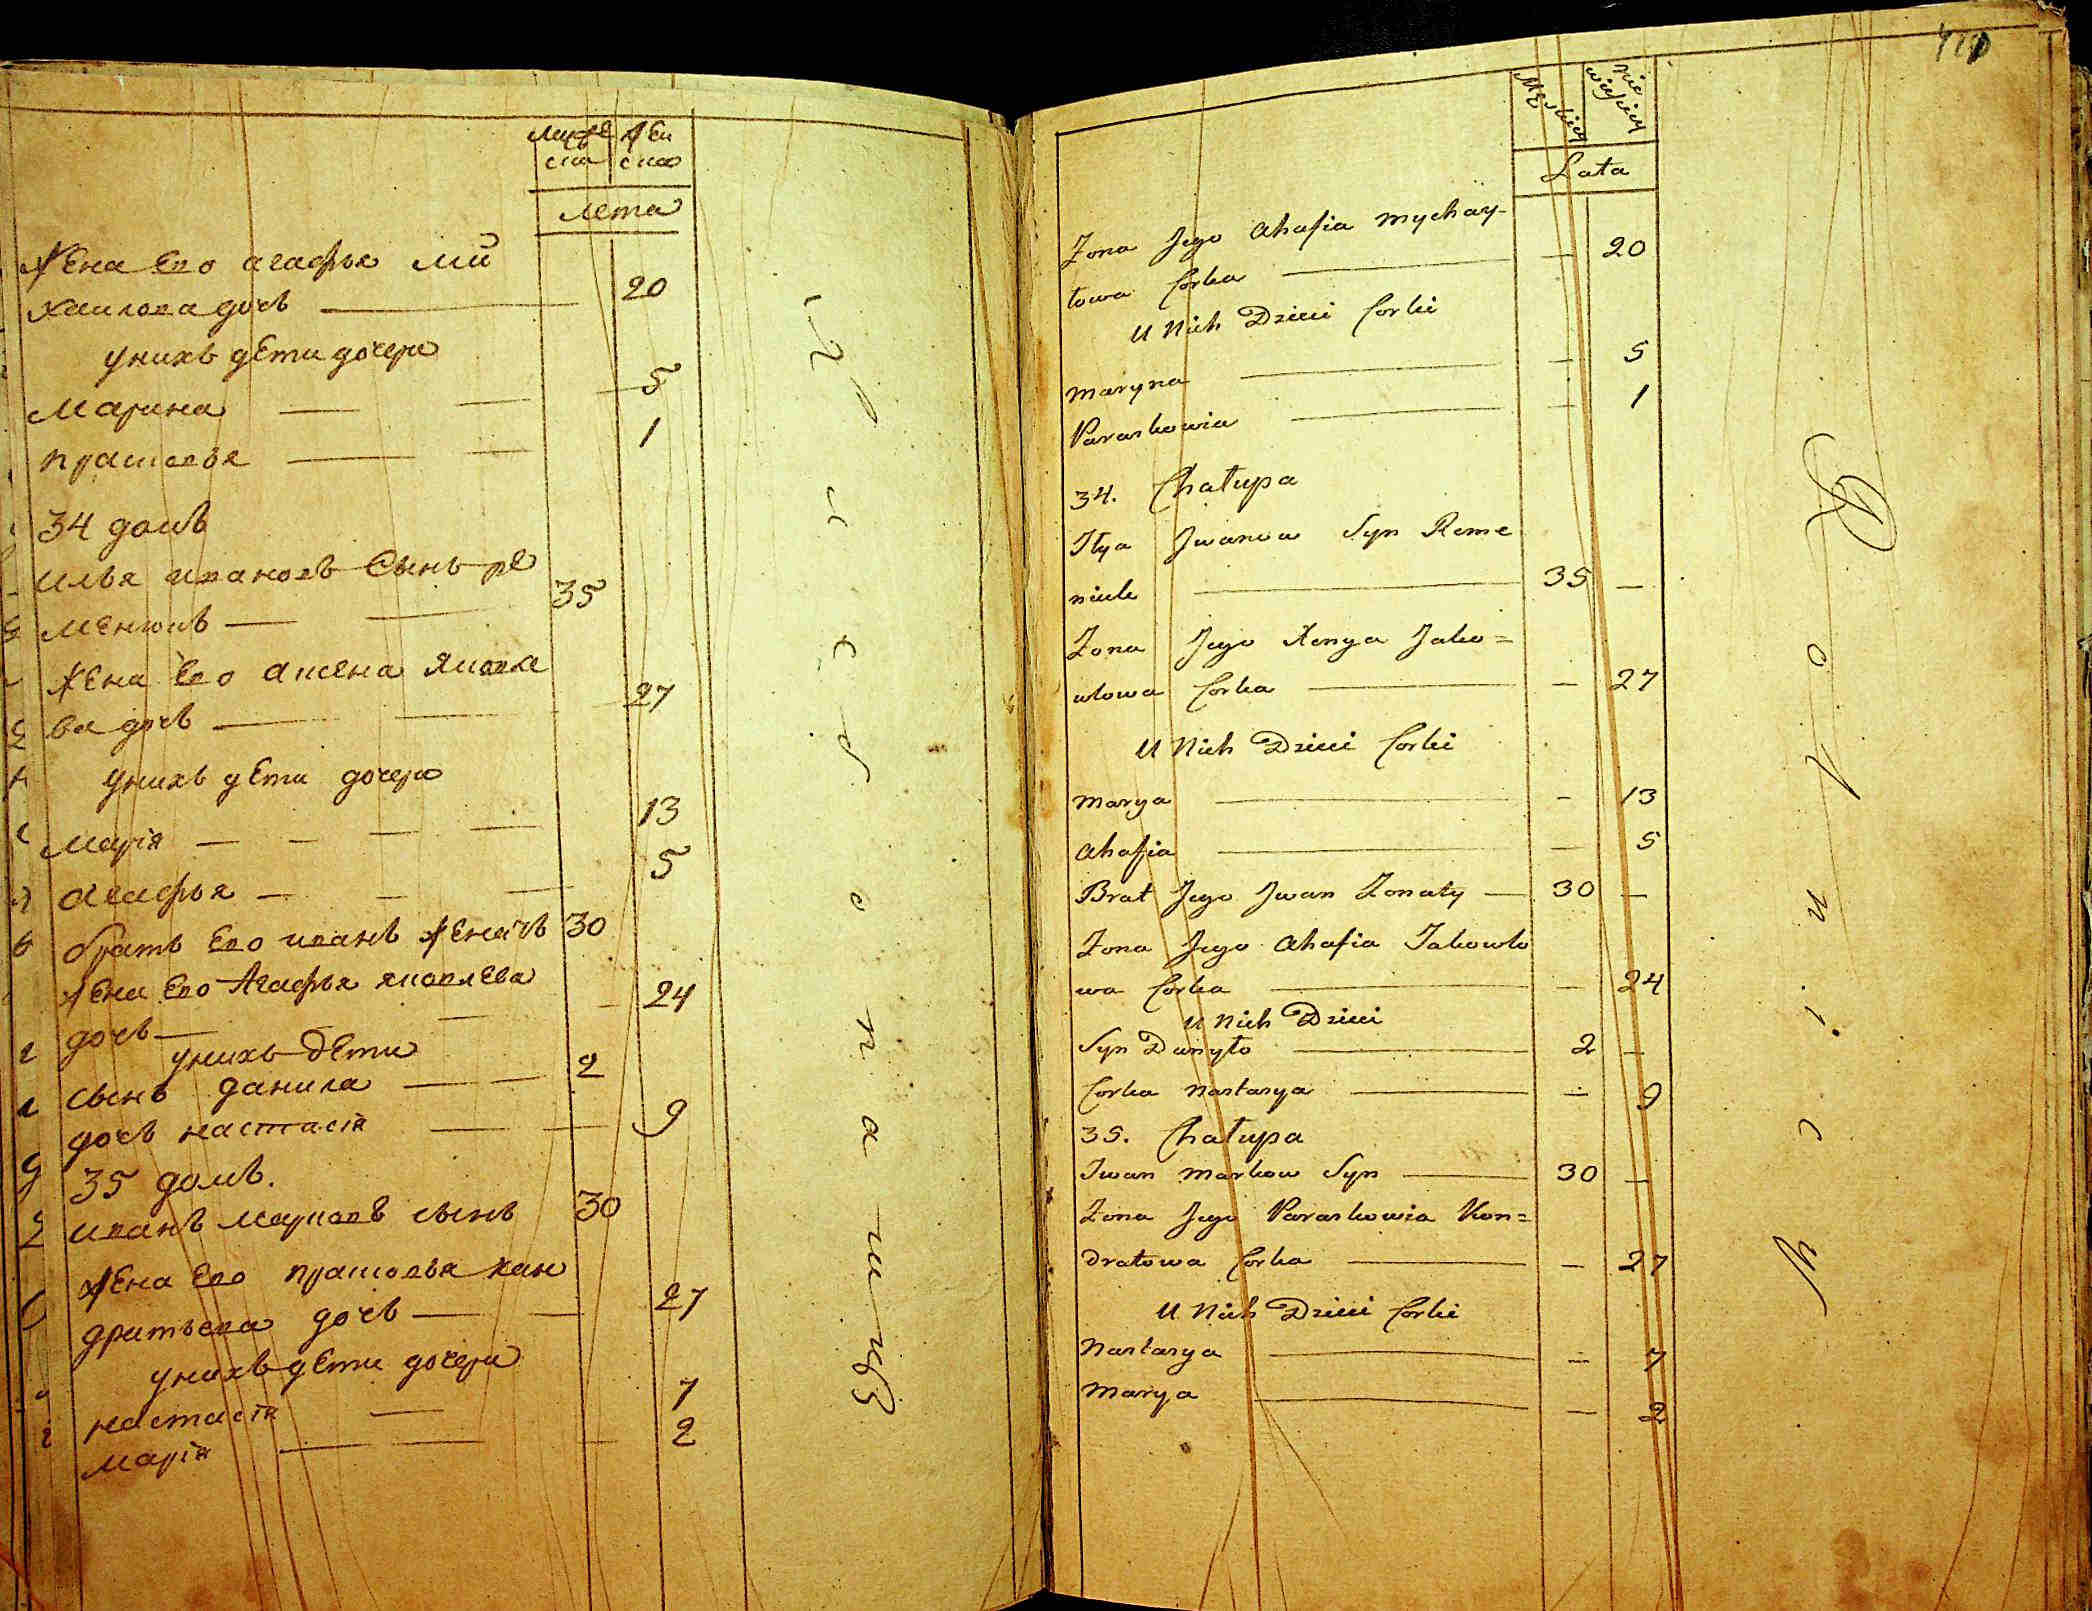 муже жен
ска ска
лета
жена Его агафья ми
хаилова дочь 20
унихъ дЕти дочери
Марина 5
прасковья 1
34 домъ
илья ивановъ Сынъ ре
мЕнюкъ 35
жЕна Его аксена яковле
ва дочь 27
унихъ дЕти дочери
марiя 13
агафья 5
братъ Его иванъ жЕнатъ 30
жЕна Его Агафья яковлЕва
дочь 24
унихъ дЕти
сынъ данила 2
дочь настасiя 9
35 домъ.
иванъ марковъ сынъ 30
жЕна Его прасковья кан
дратьева дочь 27
унихъ дЕти дочери
настасiя 7
марiя 2
Męskiey
niewieściey
Lata
Zona Jego Ahafia Mychay-
łowa Corka — 20
U Nich Dzieci Corki
Maryna — 5
Paraskowia — 1
34. Chałupa
Ilya Jwanow Syn Reme
niuk 35 —
Zona Jego Xenya Jako=
wlowa Corka — 27
U Nich Dzieci Corki
Marya — 13
Ahafia — 5
Brat Jego Jwan Zonaty — 30 —
Zona Jego Ahafia Jakowlo
wa Corka — 24
U Nich Dzieci
Syn Danyło 2 —
Corka Nastasya — 9
35. Chałupa
Iwan Markow Syn 30 —
Zona Jego Paraskowia Kon=
dratowa Corka — 27
U Nich Dzieci Corki
Nastasya — 7
Marya — 2
R o l n i c y